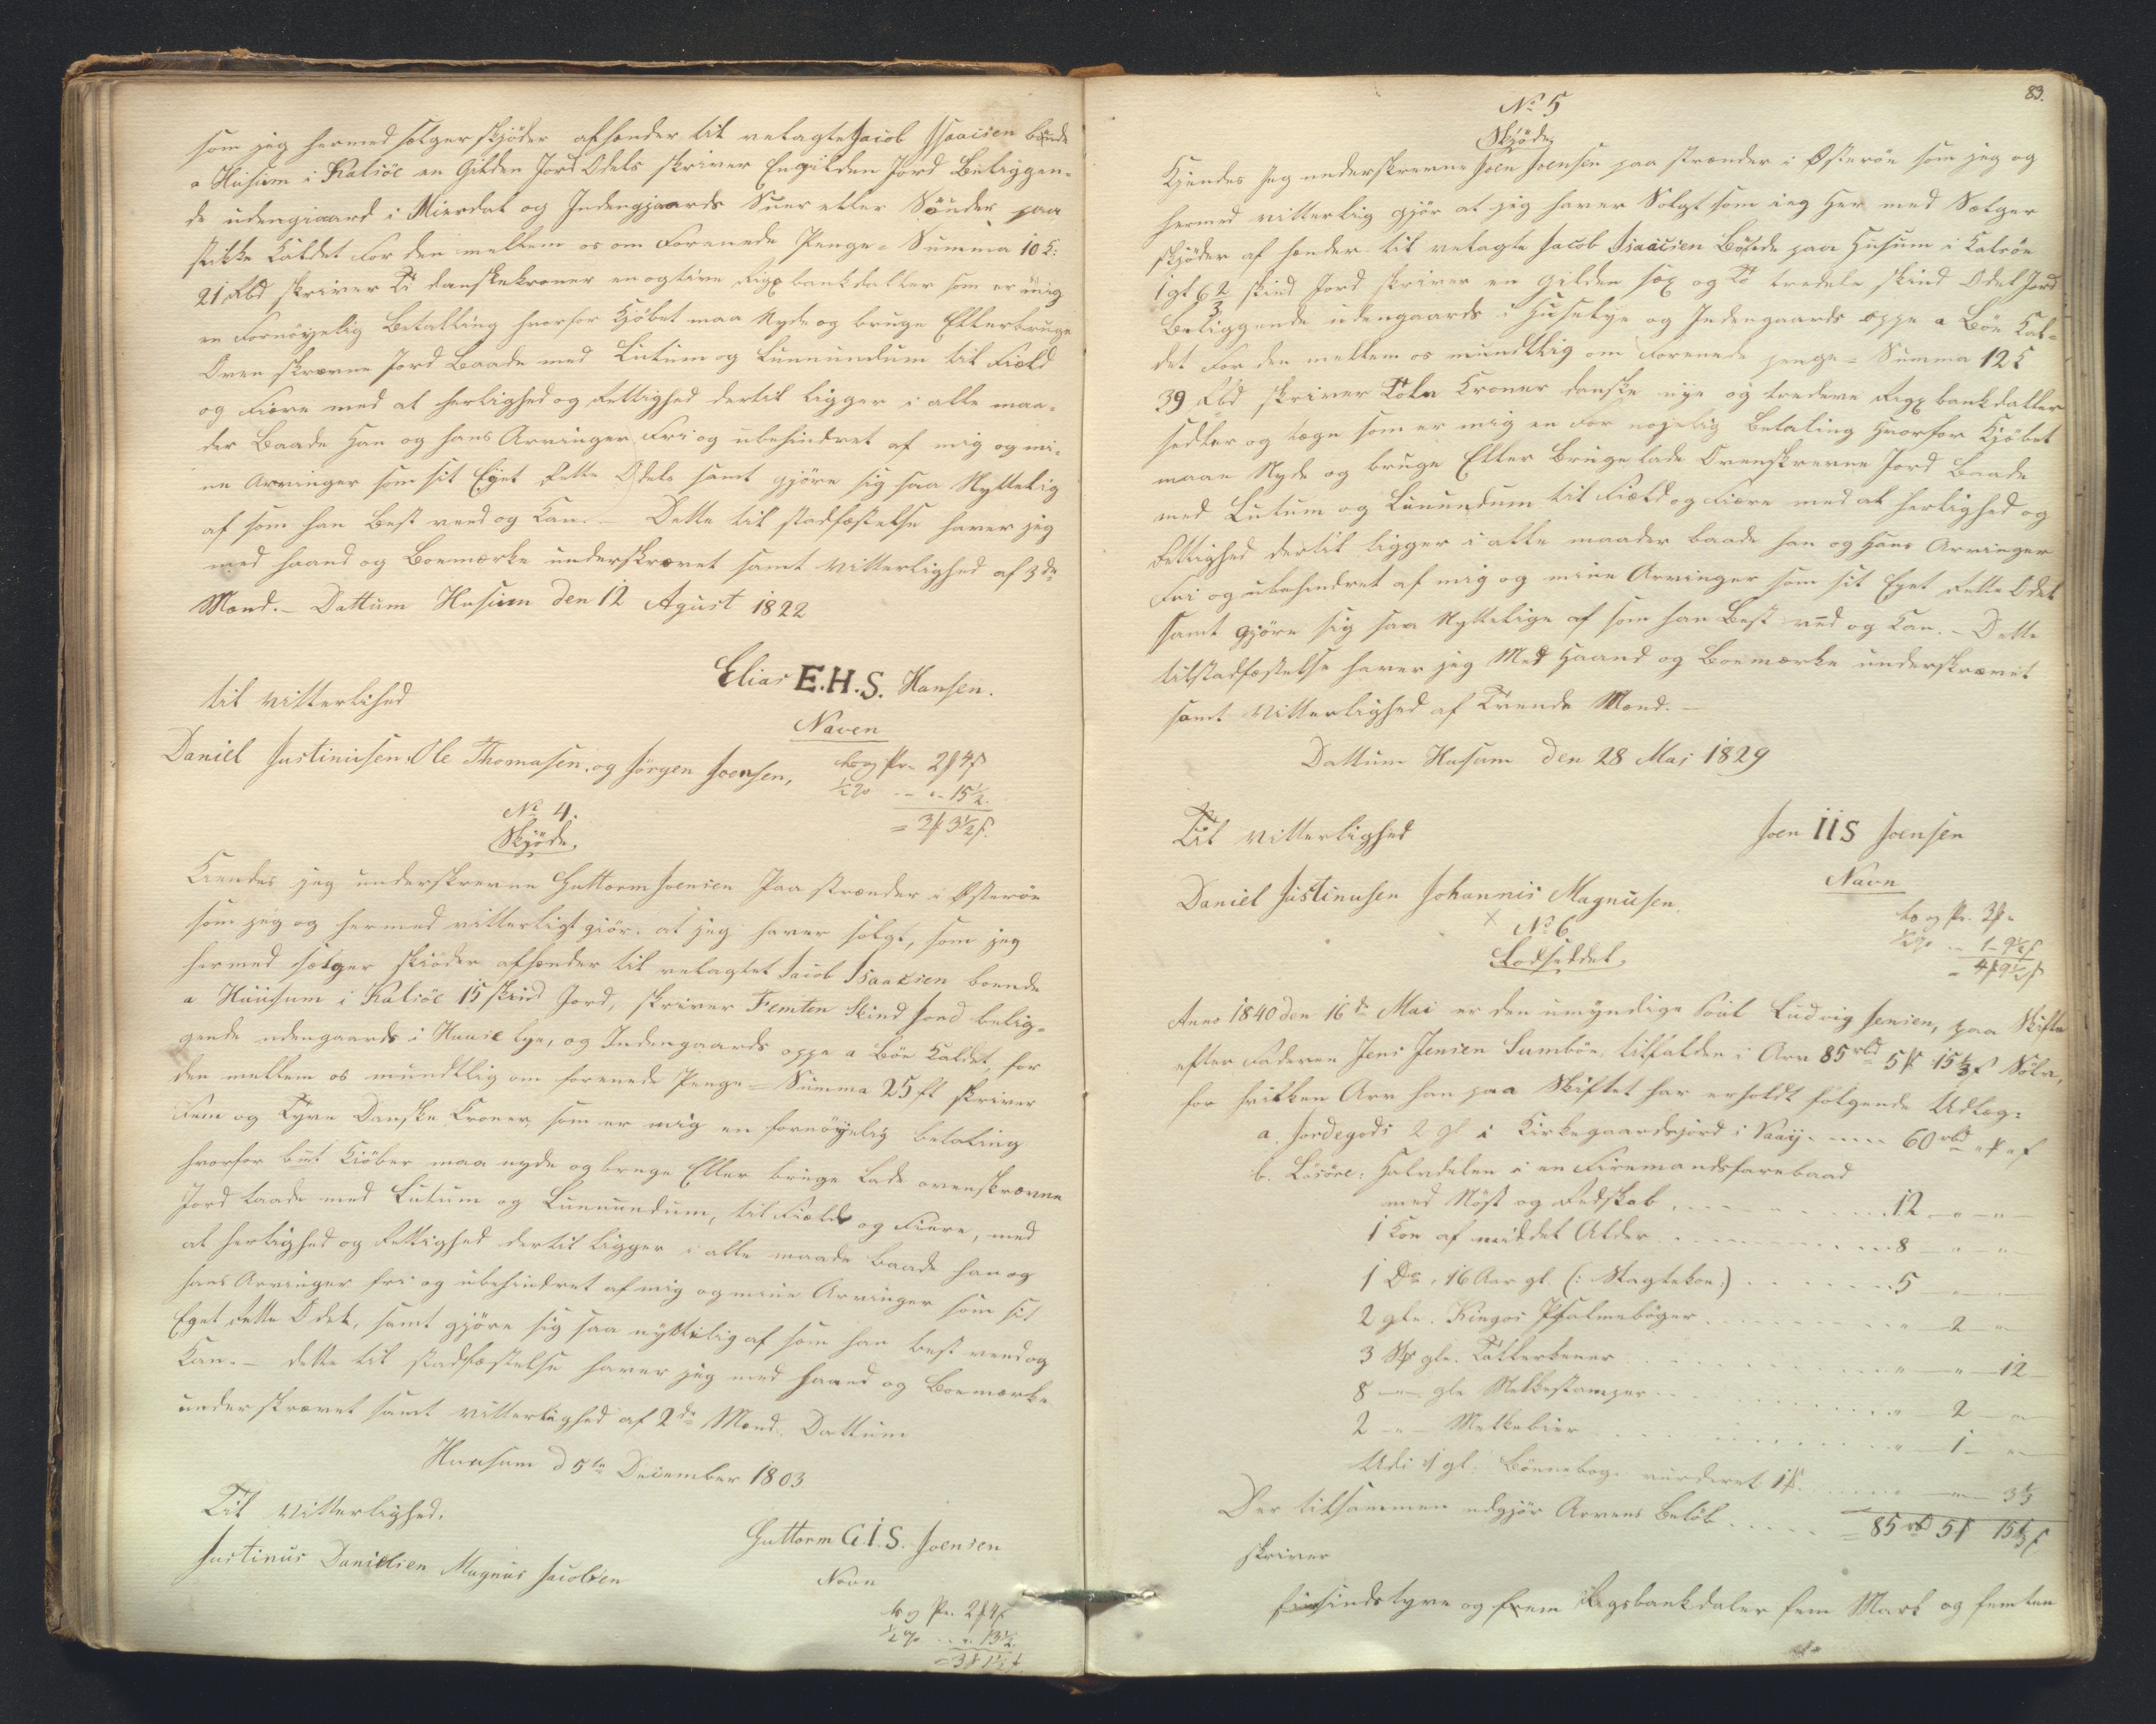 som jeg hermed sælger skjöder afhænder til velagte Jacob Jsaacsen boende
a Husum i Kalsöe en Gilden Jord Odels skriver En gilden Jord Beliggen-
de udengiaard i Mierdal og Jndengjaards Suer eller Sönder paa
stikke Kaldet For den mellem os om Forenede Penge = Summa 10 K:
21 Rbd skriver Ti danskekroner en og tive Rigsbankdaller som er mig
en Fornöyelig Betalling hvorfor Kjöbet maa Nyde og bruge Ellerbruge
Oven skrevne Jord Baade med Lutum og Lunnundum til Field
og Fiære med al herlighed og Rettighed dertil ligger i alle maa-
der Baade Han og hans Arvinger Fri og ubehindret af mig og mi-
ne Arvinger som sit Eget Rette Odels samt gjöre sig saa Nyttelig
af som han Best veed og Kan. – Dette til stadfæstelse haver jeg
med haand og Boemærke underskrevet samt Vitterlighed af 3de
Mænd. – Dattum Husum den 12 Agust 1822
Elias E.H.S. Hansen.
til vitterlihed
Naven
Daniel Justinusen, Ole Thomasen, og Jörgen Joensen,
No 4.
Skjöde.
Kiendes jeg underskrevne Guttorm Joensen Paa strænder i Österöe
som jeg og hermed vitterligt giör. at jeg haver solgt, som jeg
hermed sælger skiöder afhænder til velagtet Jacob Jsaaksen boende
a Huusum i Kalsöe 15 skind Jord, skriver Femten Skind Jord belig-
gende udengaards i Huuse bye, og Jndengaards oppe a Böe Kaldet, for
den mellem os mundtlig om forenede Penge = Summa 25 ft skriver
Fem og Tyve Danske Kroner, som er mig en fornöyelig betaling
hvorfor bemt Kiöber maa nyde og bruge Eller bruge Lade ovenskrevne
Jord baade med Lutum og Lunnundum, til Field og Fiære, med
al herlighed og Rettighed dertil ligger i alle maade baade han og
hans Arvinger fri og ubehindret af mig og mine Arvinger som sit
Eget Rette Odel, samt gjöre sig saa nyttelig af som han best veed og
Kan. – dette til stadfæstelse haver jeg med haand og Boemærke
underskrevet samt vitterlighed af 2de Mænd. Dattum
Huusum d 5te December 1803
Til Vitterlighed.
Guttorm G.I.S. Joensen
Justinus Danielsen Magnus Jacobsen
Navn
83.
No 5
Skjöde
Kjendes Jeg underskrevne Joen Joensen paa strænder i Österöe som jeg og
hermed vitterlig gjör at jeg haver Solgt som jeg Her med Sælger
skjöder af hænder til velagte Jacob Isaacsen Boende paa Husum i Kalsöe
1 gl 6 2/3 skind Jord skriver en gilden sex og to tredele skind Odel Jord
Beliggende udengaards i Husebye og Jndengaards oppe a Böe Kal-
det For den mellem os mundtlig om Forenede penge = Summa 12 K
39 Rbd skriver Tolv Kroner danske nye og tredeve Rigsbankdaller
sedler og tegn som er mig en For nöjelig Betaling Hvorfor Kjöbet
maae Nyde og bruge Eller Bruge lade Ovenskrevne Jord Baade
med Lutum og Lunundum til Field og Fiære med al herlighed og
Rettighed dertil ligger i alle maader baade han og Hans Arvinger
Fri og ubehindret af mig og mine Arvinger som sit Eget Rette Odel
samt gjöre sig saa Nyttelige af som han Best ved og Kan. – Dette
tilstadfæstelse haver jeg Med Haand og Boemærke underskrevet
samt Vitterlighed af Trende Mænd. –
Dattum Husum den 28 Maj 1829
Til Vitterlighed
Joen IIS Joensen
Daniel Justinusen Johannis Magnusen
Navn
No 6
Lodseddel.
Anno 1840 den 16de Mai er den umyndige Poul Ludvig Jensen, paa Skifte
efter Faderen Jens Jensen Sumböe, tilfalden i Arv 85 rbd 5 ℔ 15 1/3 ß Sölv,
for hvilken Arv han paa Skiftet har erholdt fölgende Udlæg:
a. Jordegods 2 gl i Kirkegaardsjord i Vaaij 60 rbd " ℔ " ß
b. Lösöre: Halvdelen i en Firemandsfarebaad
med Nöst og Redskab 12 – " – "
1 Koe af middel Alder 8 – " – "
1 Do, 16 Aar gl. (: Slagtekoe:) 5 – " – "
2 gle. Kingos Psalmeböger " – 2 – "
3 Stk gle. Tallerkener " – " – 12
8 – " – gle Melkestamper " – 2 – "
2 – " – Melkebier " – 1 – "
Udi 1 gl. Bönnebog vurderet 1 ℔ " – " – 3 1/3
Der tilsammen udgjör Arvens Belöb = 85 rbd 5 ℔ 15 1/3 ß
skriver
firsindstyve og frem Rigsbankdaler fem Mark og femten